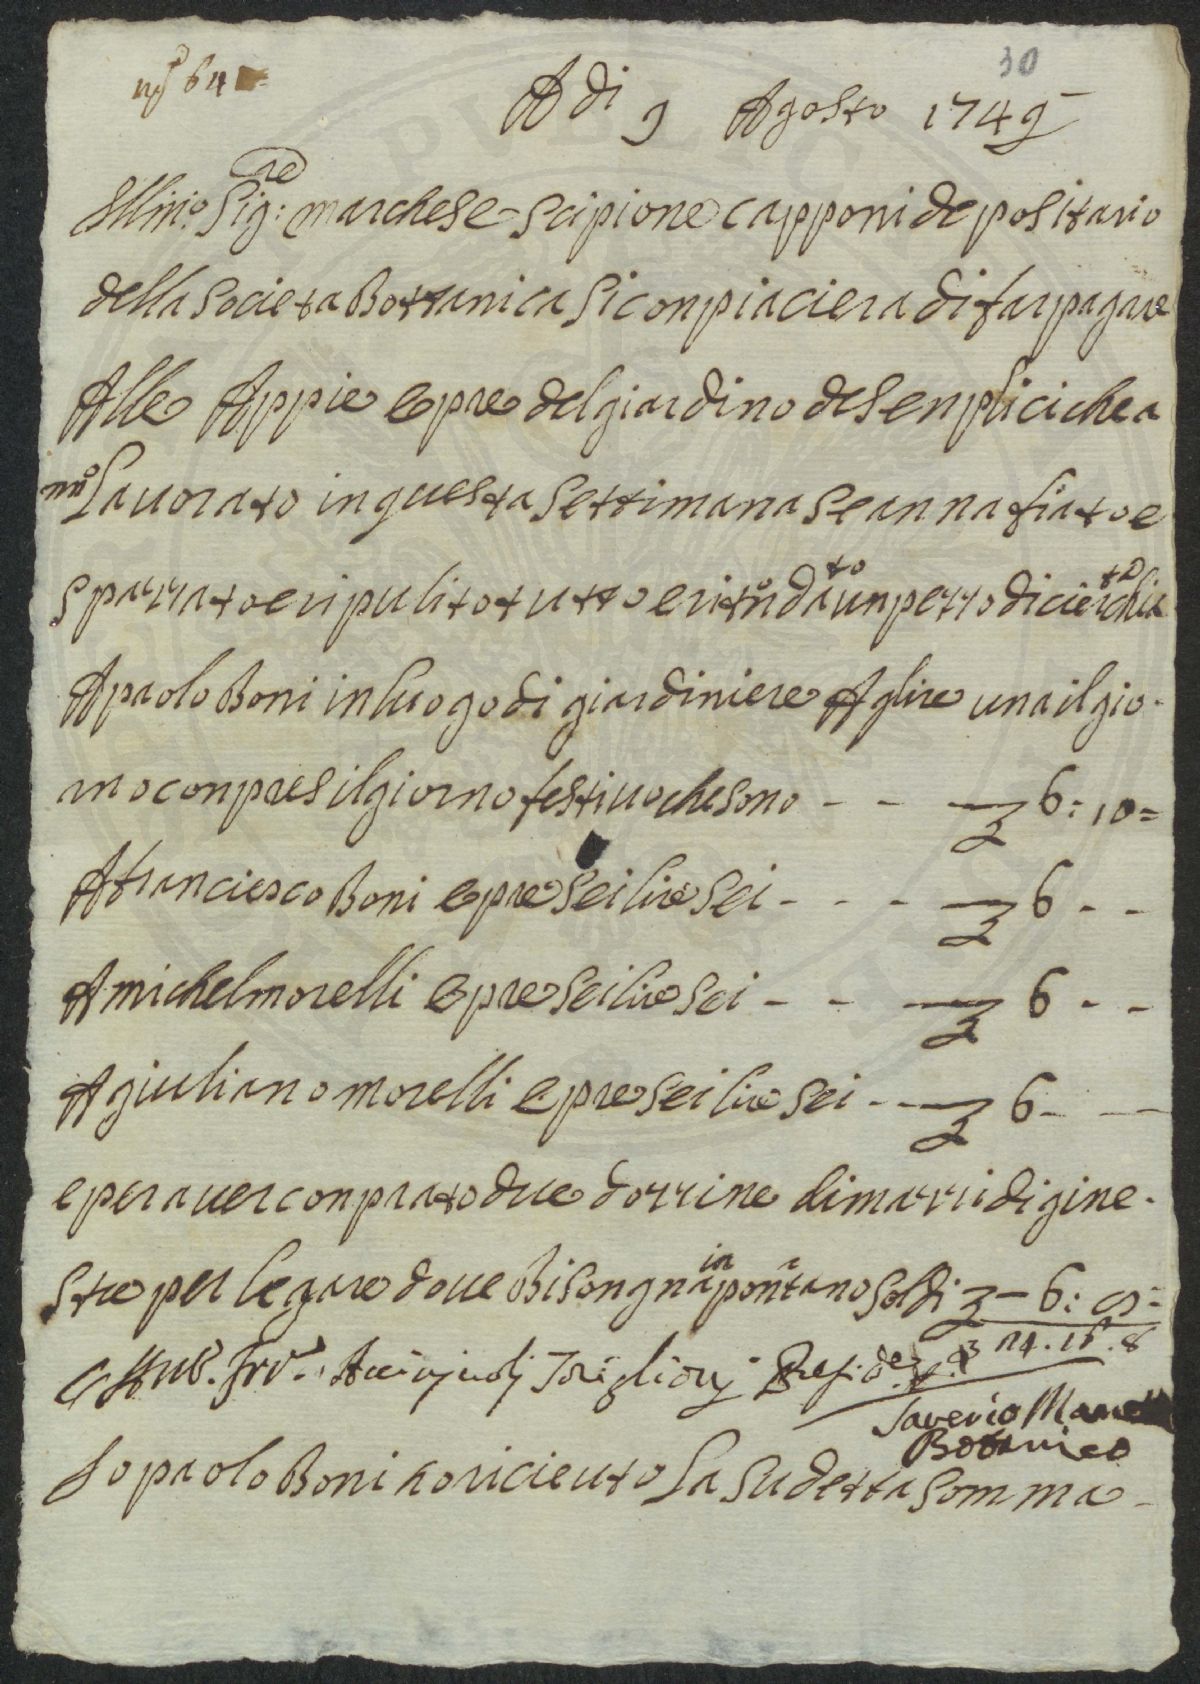 nº 64
30
A di 9 Agosto 1749
Illmo: Sigre: marchese Scipione Capponi depositario
della Societa Bottanica Si conpiaciera di far pagare
Alle Appie epreo del giardino de Senplici che a
nno Lauorato in questa Settimana Se annafiato e
Sparrato e ripulito tutto e ritondato un perro di cierchiata
A paolo Boni in luogo di giardiniere A lire una il gio-
rno conpres il giorno festiuo che sono - - 6: 10=
A franciesco Boni epreo Sei lire Sei - - - 6 - -
A michel morelli epreo Sei lire Sei - - 6 - -
A giuliano morelli epreo Sei lire Sei - - 6 - -
e per auer conprato due dorrine di marri di gine-
stre per legare doue Bisongna in pontano Soldi - 6: 8=
24. 16. 8
Saverio Manetti
Botanico
Io paolo Boni o riceuto La Sudetta Somma